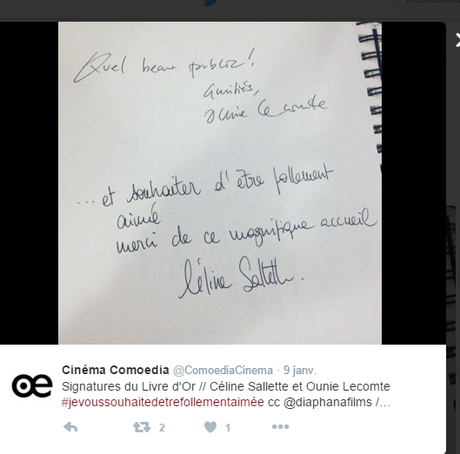 Quel beau public!
Amitiés,
Ounie Lecomte
... et souhaiter d'être follement
aimée
merci de ce magnifique accueil
Céline Sallette.
oe
Cinéma Comoedia @ComoediaCinema · 9 janv.
Signatures du Livre d'Or // Céline Sallette et Ounie Lecomte
#jevoussouhaitedetrefollementaimée cc @diaphanafilms /...
2 1